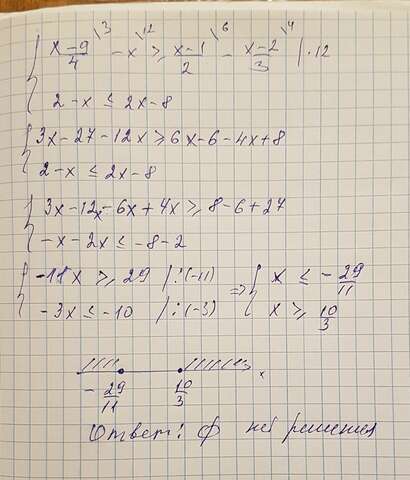 { x-9/4 \3 - x \12 ≥ x-1/2 \6 - x-2/3 \4 | · 12
2-x ≤ 2x-8
{ 3x-27-12x ≥ 6x-6-4x+8
2-x ≤ 2x-8
{ 3x-12x-6x+4x ≥ 8-6+27
-x-2x ≤ -8-2
{ -11x ≥ 29 | :(-11) ⇒ { x ≤ -29/11
-3x ≤ -10 | :(-3) x ≥ 10/3
-29/11 10/3 x
Ответ: ∅ нет решения